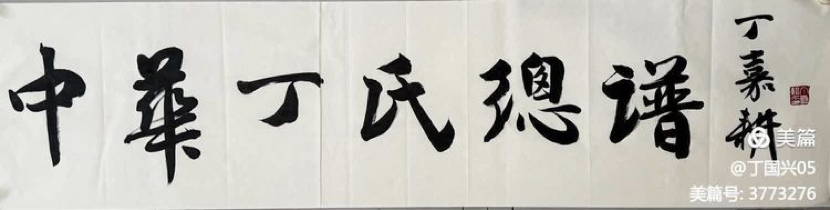 中華丁氏總譜
丁嘉耕
美篇
@丁国兴05
美篇号: 3773276